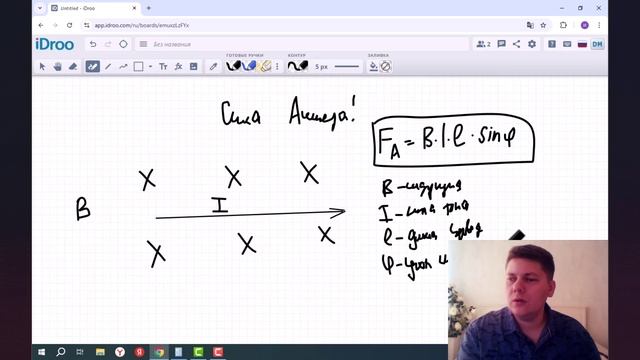 Untitled - iDroo
app.idroo.com/ru/boards/emuxzLzFYx
iDroo
Без названия
2
DM
ГОТОВЫЕ РУЧКИ
КОНТУР
ЗАЛИВКА
5 px
Сила Ампера!
F_A = B·I·l·sinφ
B - индукция
I - сила тока
l - длина
φ - угол
B
I
X X X
X X X